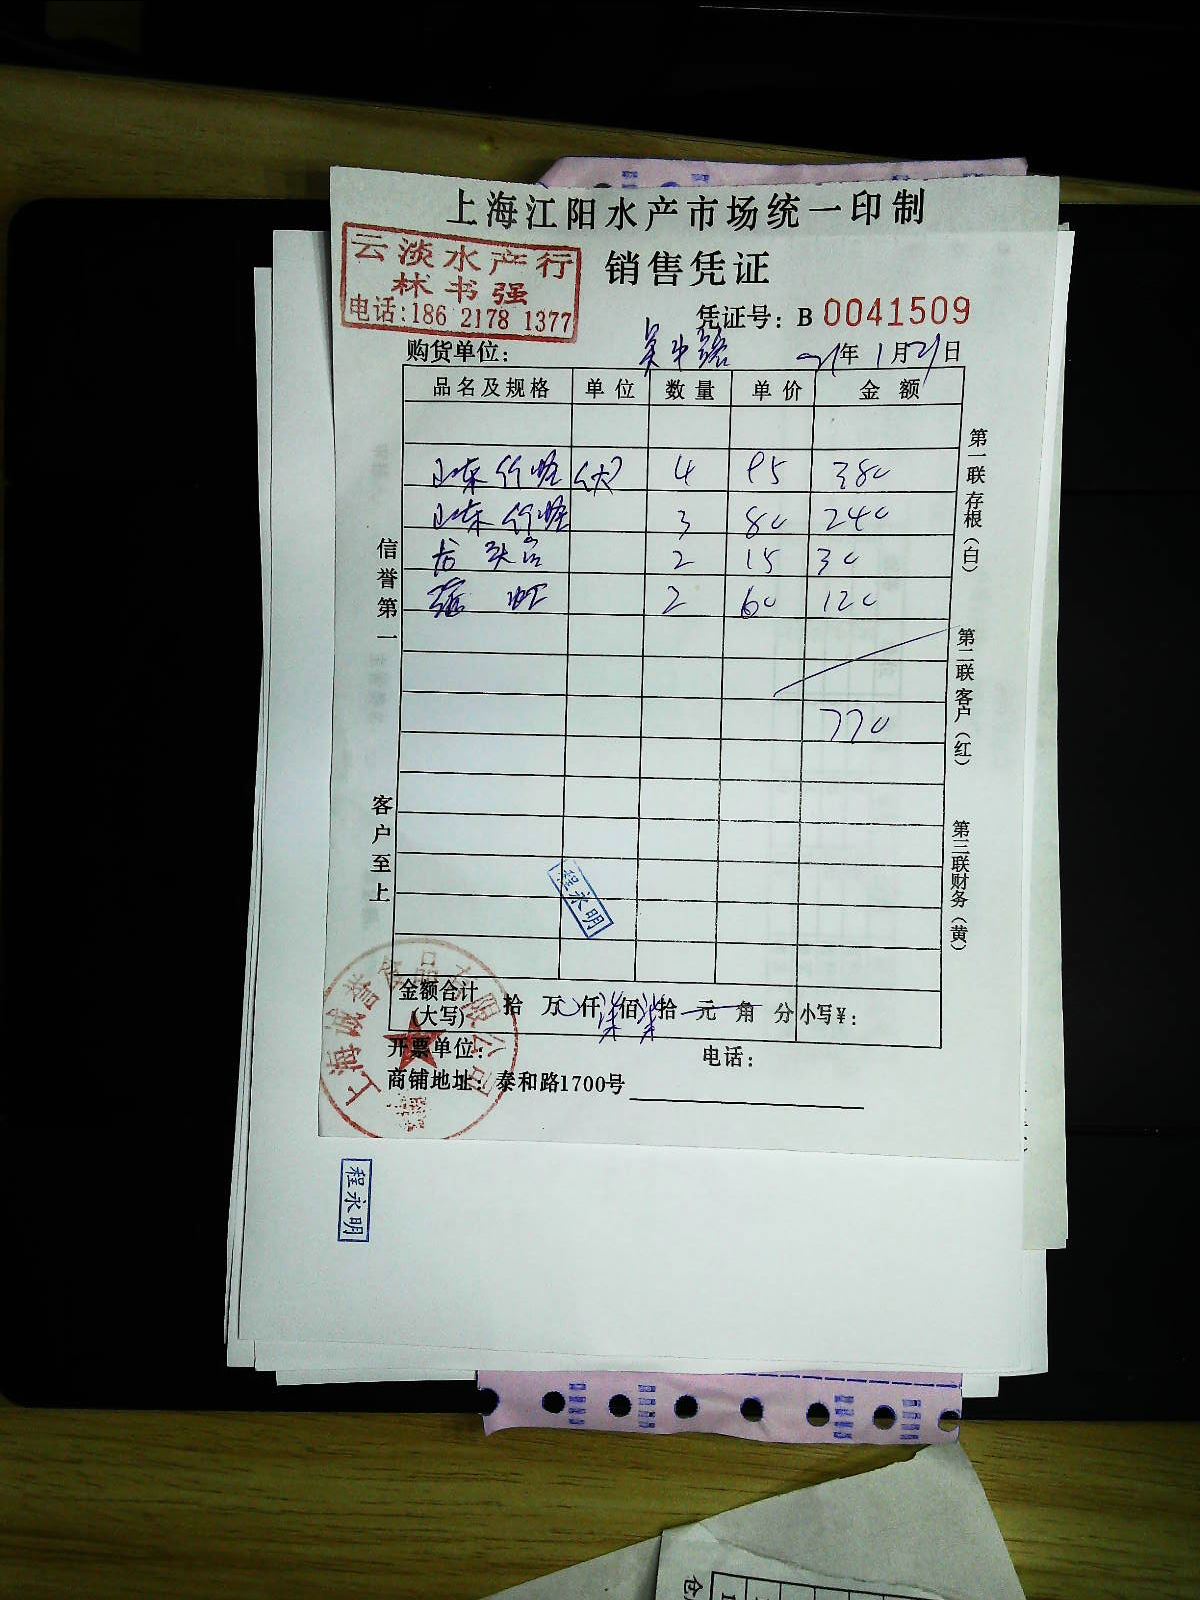 上海江阳水产市场统一印制
云淡水产行
林书强
电话:186 2178 1377
销售凭证
凭证号: B 0041509
购货单位: 吴中路 21年1月21日
品名及规格 单位 数量 单价 金额
山东竹蛏 (大) 4 95 380
山东竹蛏 3 80 240
龙头 2 15 30
2 60 120
770
信誉第一
客户至上
第一联存根(白)
第二联客户(红)
第三联财务(黄)
程永明
金额合计(大写) 拾 万 仟 柒佰 柒拾 元 角 分 小写¥:
开票单位: 电话:
商铺地址: 泰和路1700号
上海诚誉食品有限公司
程永明